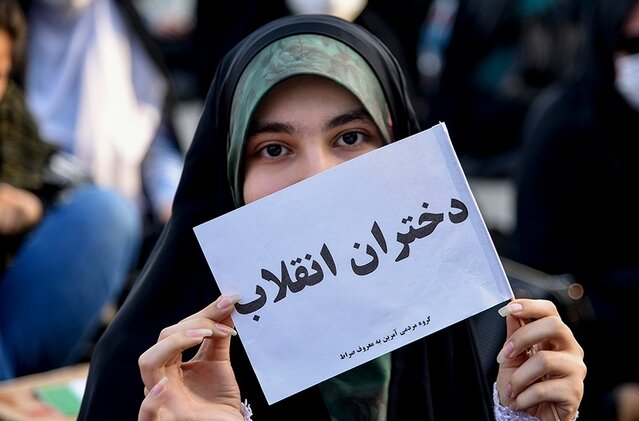 دختران انقلاب
گروه مردمی آمرین به معروف صراط